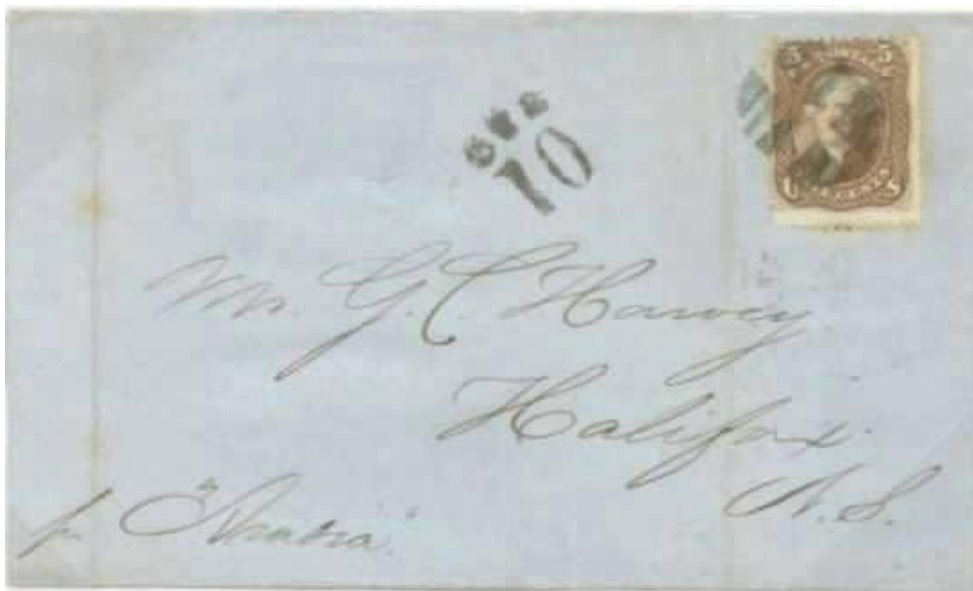 5 5
10
Mr. G. C. Harvey
Halifax
N.S.
pr "Arabia"